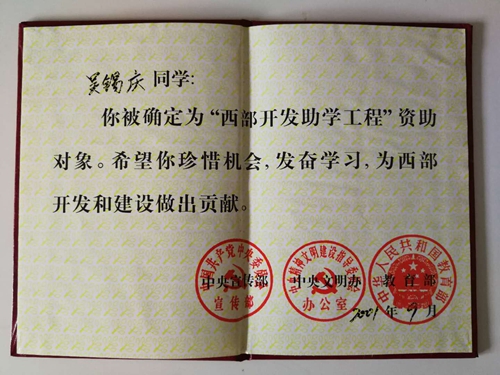 吴锡庆 同学:
你被确定为“西部开发助学工程”资助
对象。希望你珍惜机会，发奋学习，为西部
开发和建设做出贡献。
中国共产党中央委员会
宣传部
中央精神文明建设指导委员会
办公室
中华人民共和国教育部
中央宣传部 中央文明办 教育部
2001年9月